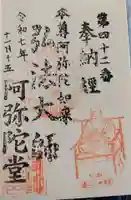 第四十二番
奉納経
本尊阿弥陀如来
弘法大師
阿弥陀堂
令和七年
十一月十五